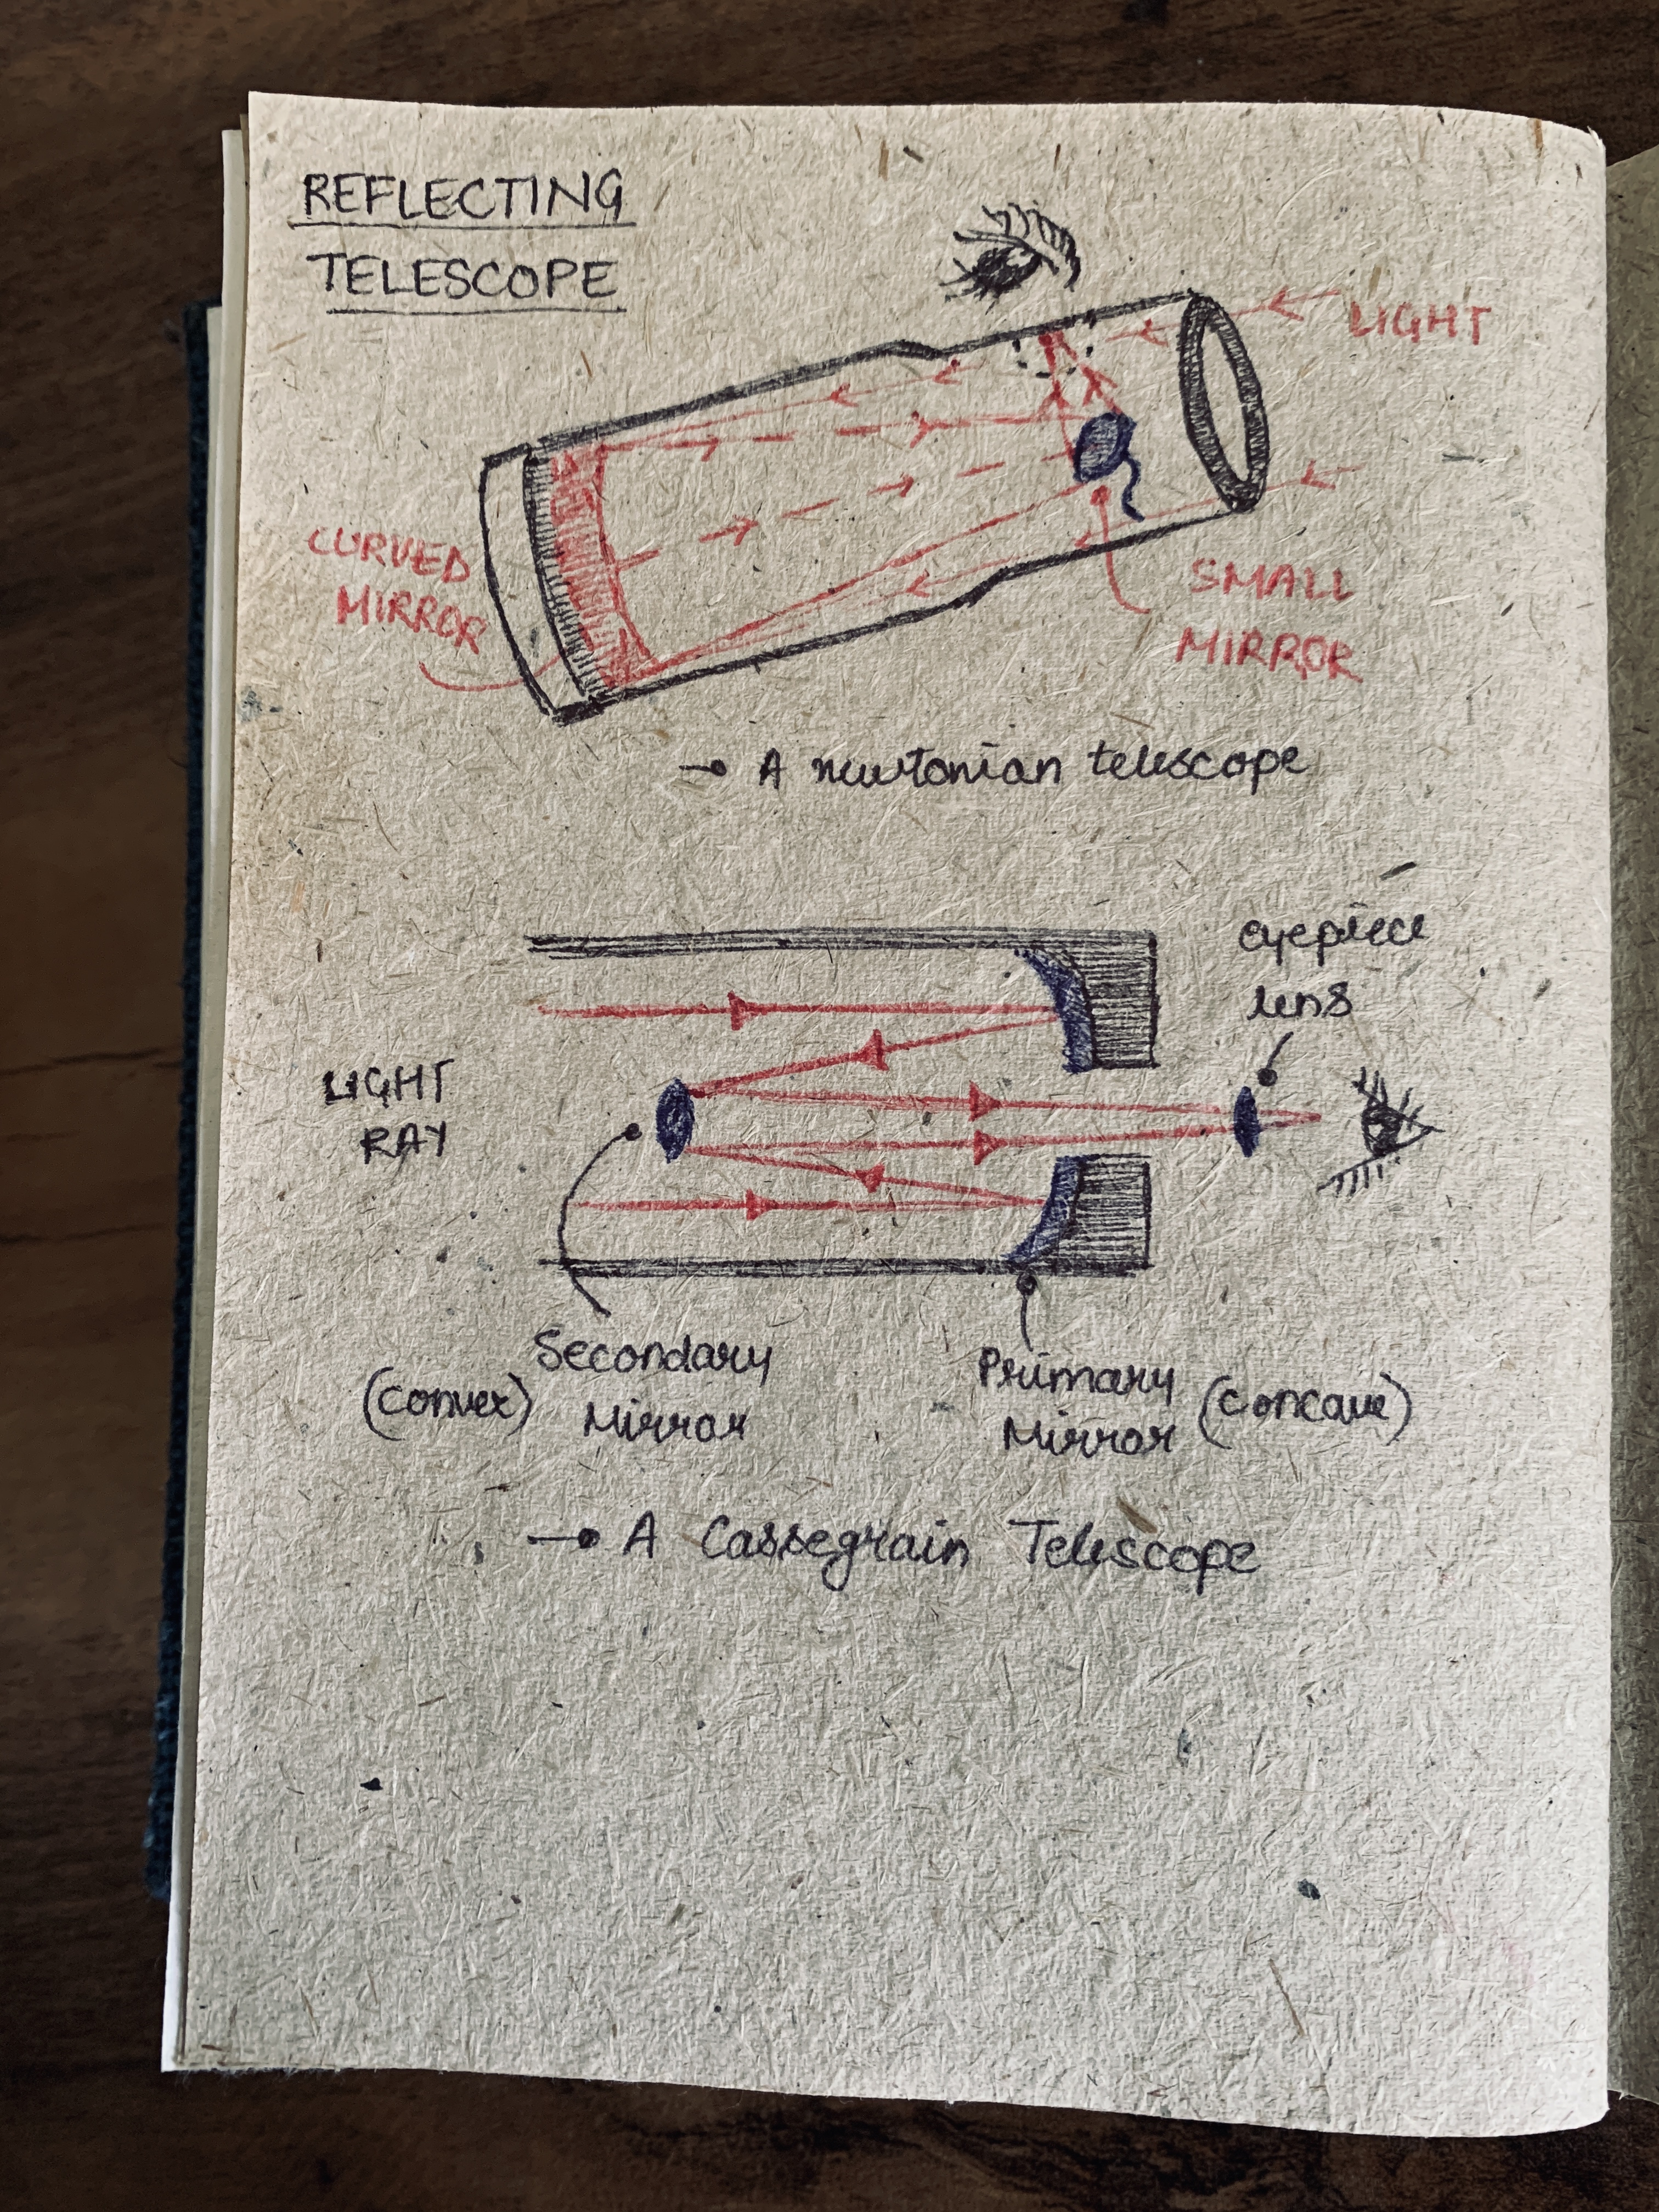 REFLECTING
TELESCOPE
LIGHT
CURVED
MIRROR
SMALL
MIRROR
→ A newtonian telescope
eyepiece
lens
LIGHT
RAY
Secondary
(convex) Mirror
Primary
Mirror (concave)
→ A Cassegrain Telescope